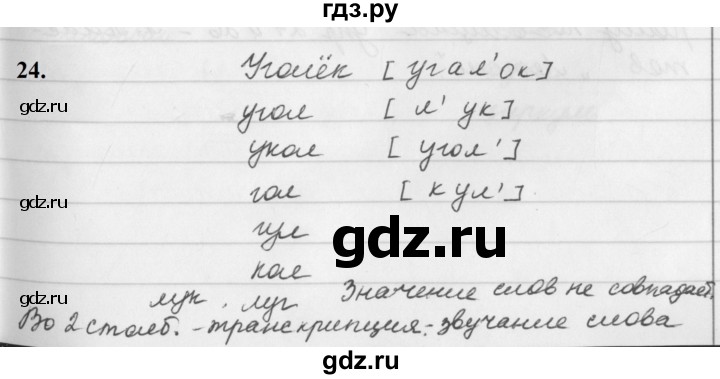 гдз.ру
24. Уголёк [угал'ок]
gdz.ru угол [л'ук]
укол [угол']
gdz.ru гол [кул']
гул
gdz.ru
кол
gdz.ru лук, луг Значение слов не совпадает.
Во 2 столб. - транскрипция - звучание слова
gdz.ru